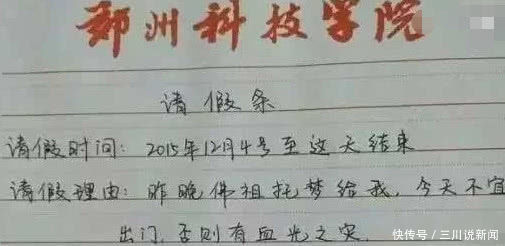 郑州科技学院
请假条
请假时间：2015年12月4号至这天结束
请假理由：昨晚佛祖托梦给我，今天不宜
出门，否则有血光之灾
快传号/三川说新闻